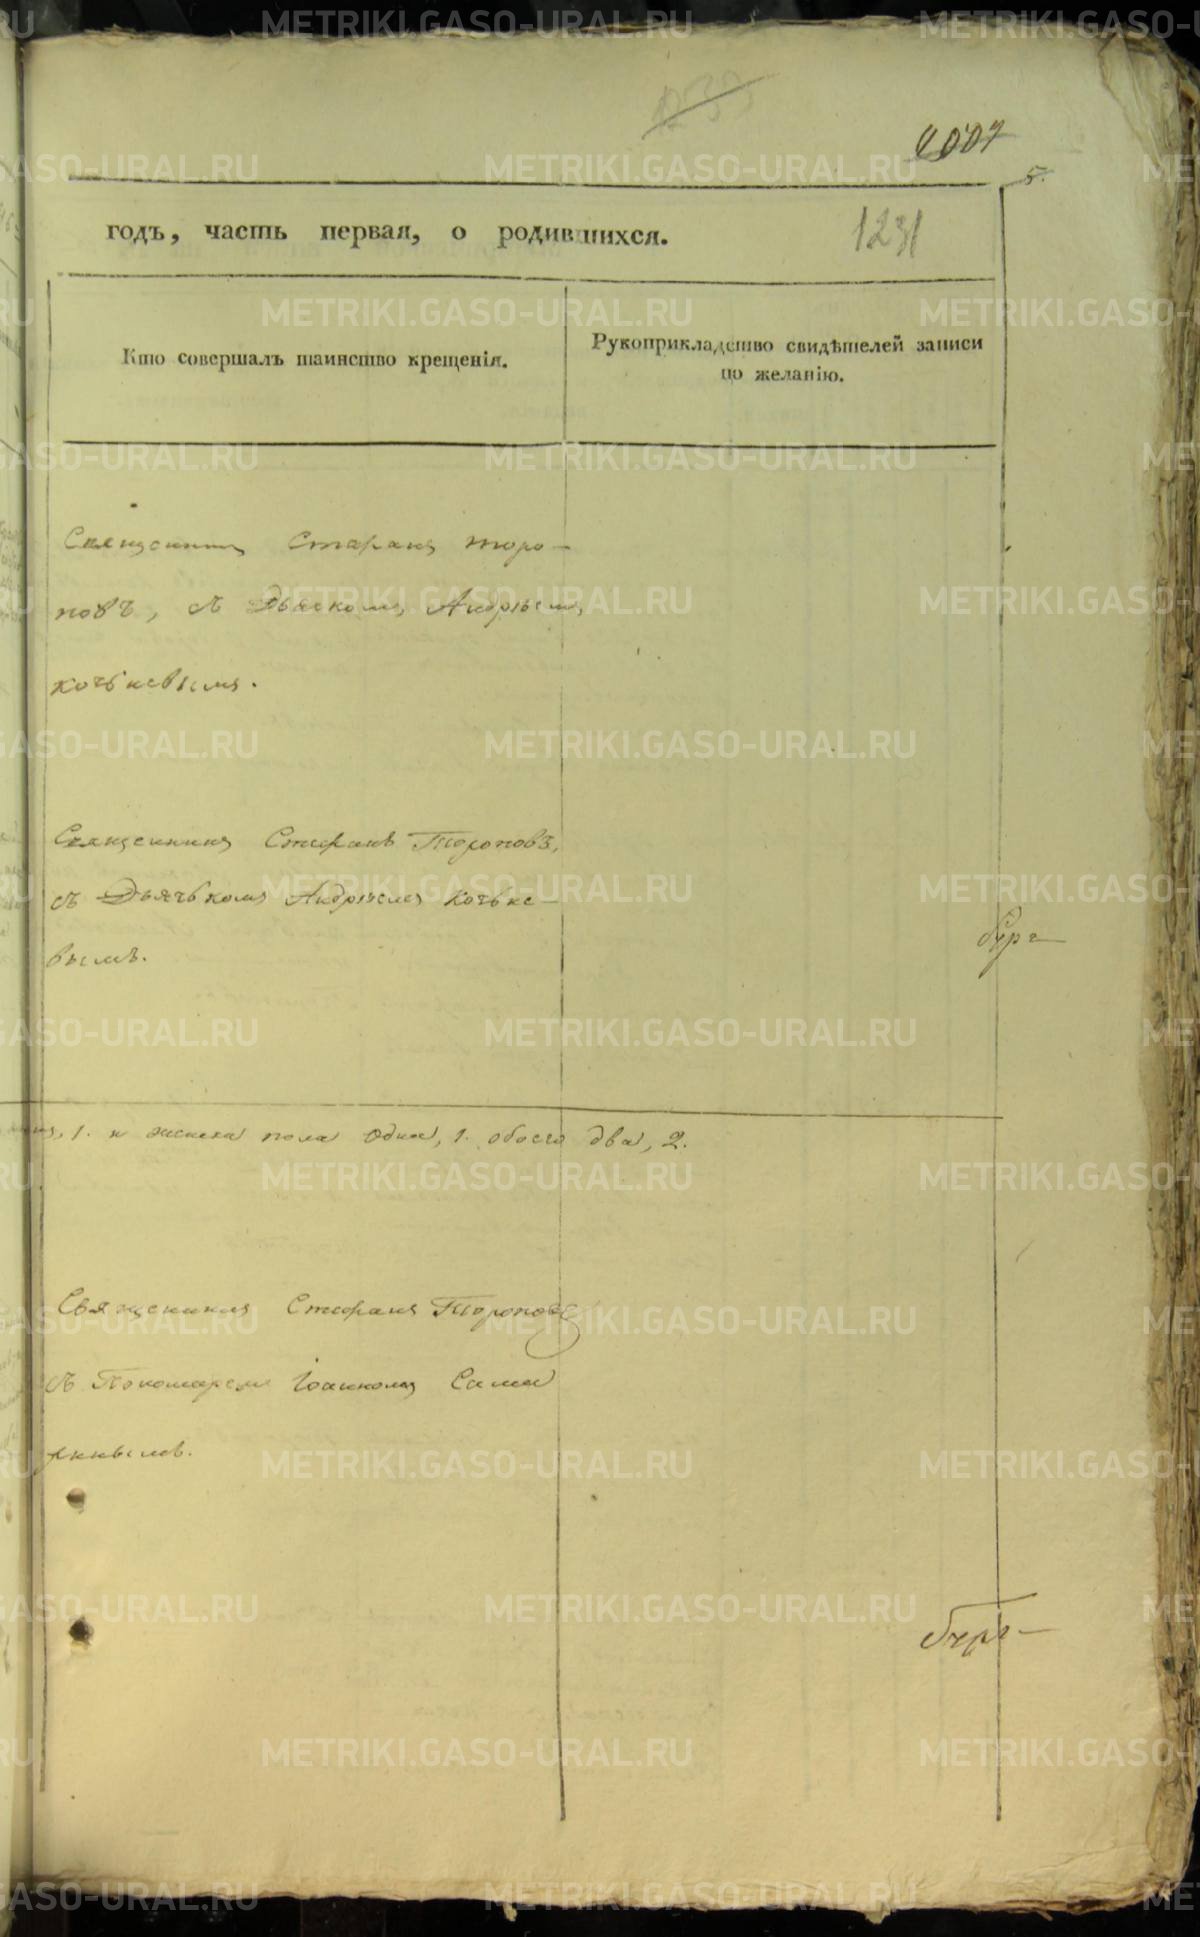 1007
5.
годъ, часть первая, о родившихся.
1231
Кто совершалъ таинство крещенія.
Рукоприкладство свидѣтелей записи
по желанію.
Священникъ Стефанъ Торо-
повъ, съ Дьячкомъ Андрѣемъ
Кочьневымъ.
Священникъ Стефанъ Тороповъ,
съ Дьячькомъ Андрѣемъ Кочьне-
вымъ.
1. и женска пола одна, 1. обоего два, 2.
Священникъ Стефанъ Тороповъ
съ Пономаремъ Іоанномъ
METRIKI.GASO-URAL.RU